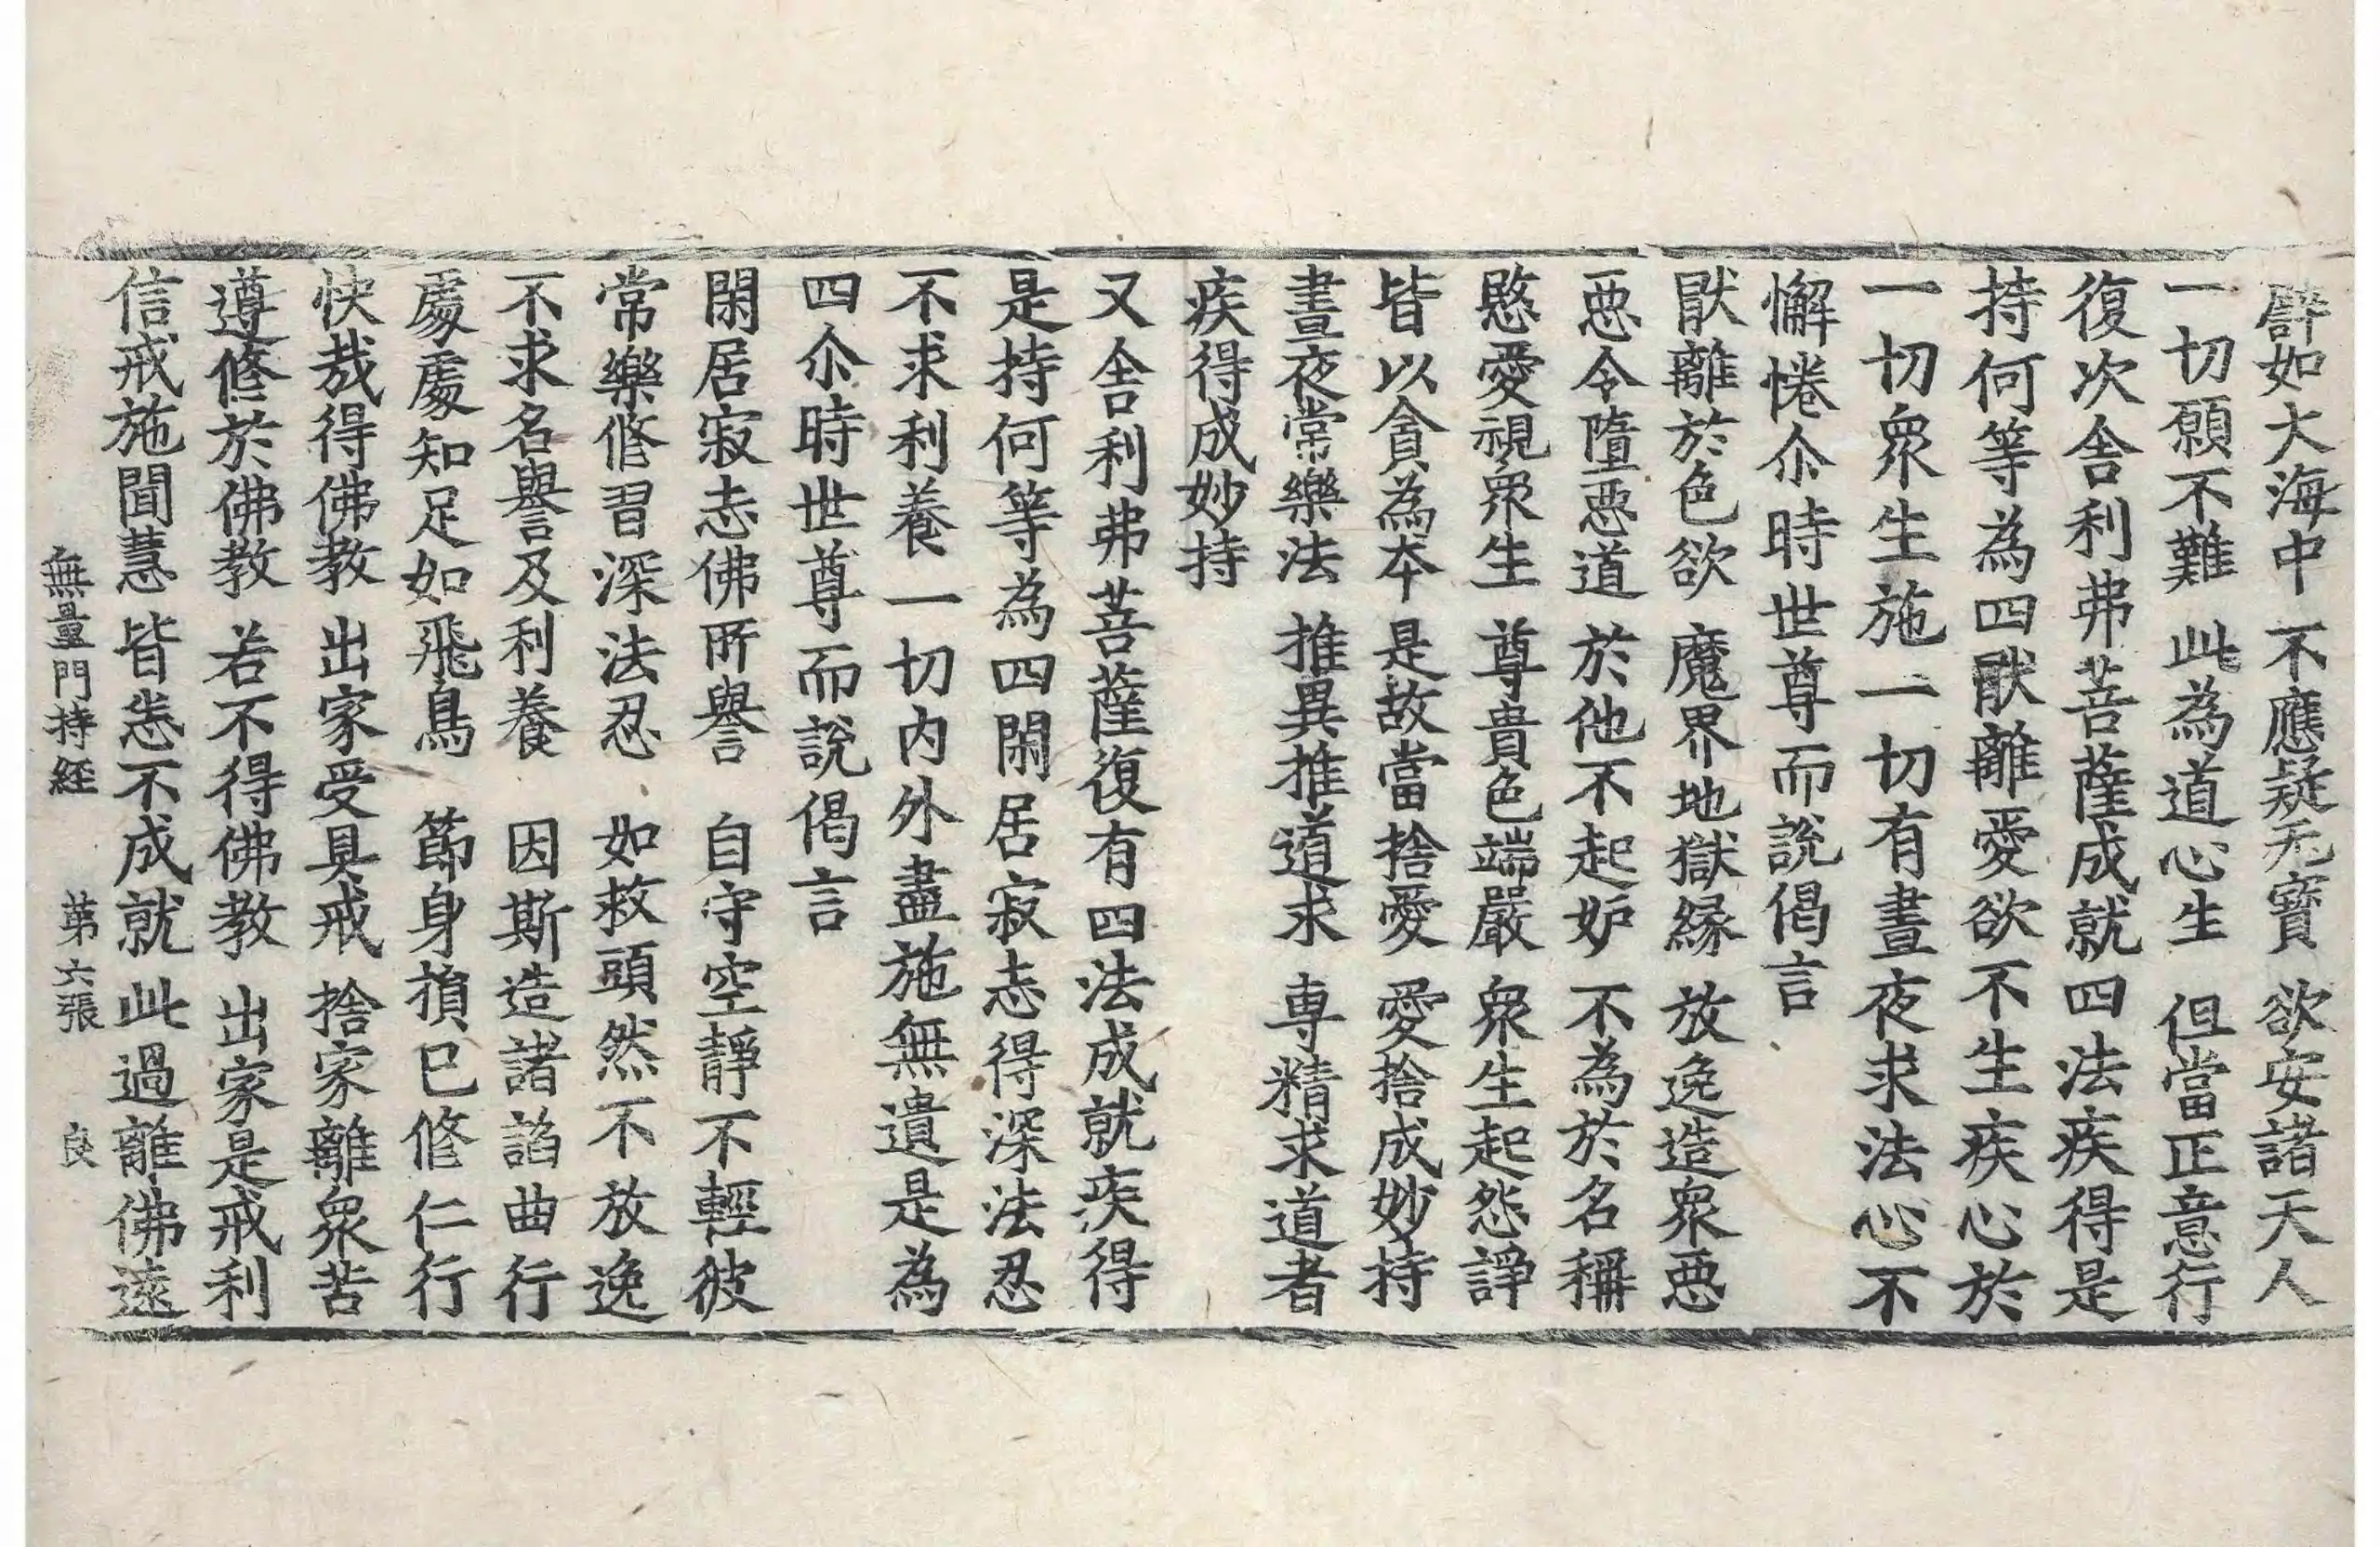 譬如大海中 不應疑无寶 欲安諸天人
一切願不難 此為道心生 但當正意行
復次舍利弗菩薩成就四法疾得是
持何等為四猒離愛欲不生疾心於
一切眾生施一切有晝夜求法心不
懈惓尒時世尊而說偈言
猒離於色欲 魔界地獄緣 放逸造眾惡
惡令墮惡道 於他不起妒 不為於名稱
愍愛視眾生 尊貴色端嚴 眾生起怨諍
皆以貪為本 是故當捨愛 愛捨成妙持
晝夜常樂法 推異推道求 専精求道者
疾得成妙持
又舍利弗菩薩復有四法成就疾得
是持何等為四閑居寂志得深法忍
不求利養一切內外盡施無遺是為
四尒時世尊而說偈言
閑居寂志佛所譽 自守空靜不輕彼
常樂修習深法忍 如救頭然不放逸
不求名譽及利養 因斯造諸諂曲行
處處知足如飛鳥 節身損已修仁行
快哉得佛教 出家受具戒 捨家離眾苦
遵修於佛教 若不得佛教 出家是戒利
信戒施聞慧 皆悉不成就 此過離佛遠
無量門持経 第六張 良